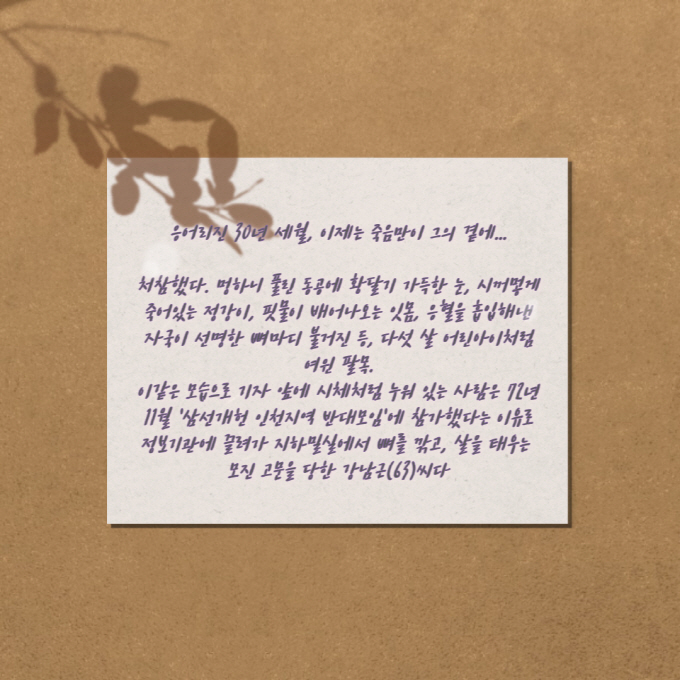 응어리진 30년 세월, 이제는 죽음만이 그의 곁에...
처참했다. 멍하니 풀린 동공에 황달기 가득한 눈, 시꺼멓게
죽어있는 정강이, 핏물이 배어나오는 잇몸, 유혈을 흡입해낸
자국이 선명한 뼈마디 불거진 등, 다섯 살 어린아이처럼
여윈 팔목.
이같은 모습으로 기자 앞에 시체처럼 누워 있는 사람은 72년
11월 '삼선개헌 인천지역 반대모임'에 참가했다는 이유로
정보기관에 끌려가 지하밀실에서 뼈를 깎고, 살을 태우는
모진 고문을 당한 강남근(63)씨다